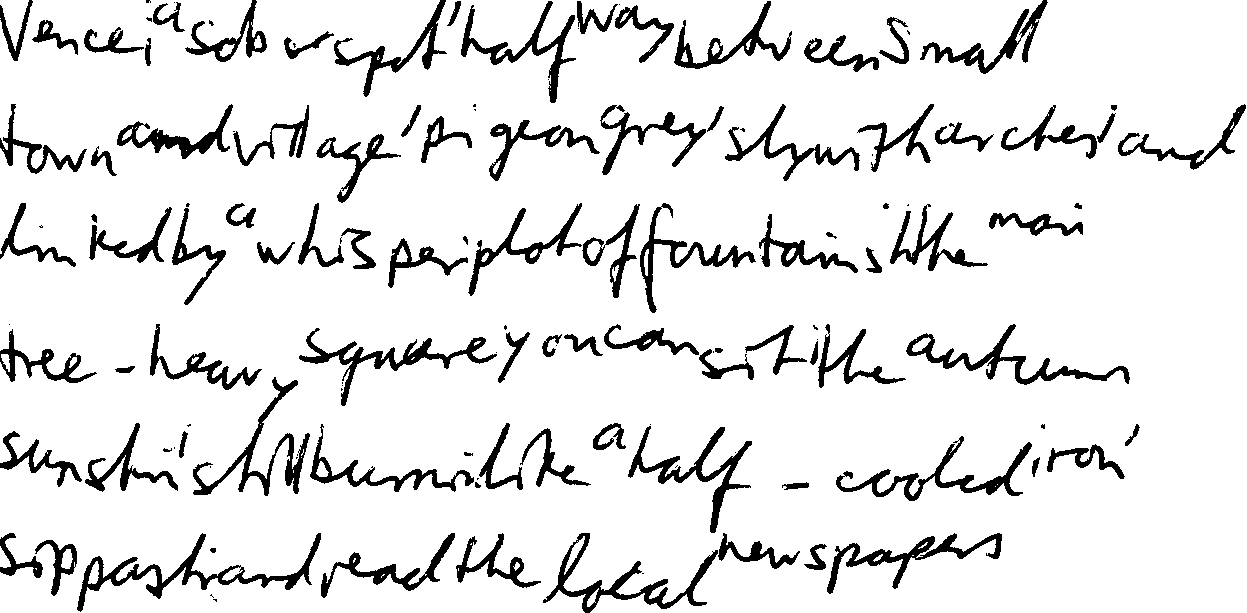 Vence, a sober spot halfway between small
town and village, pigeon grey, sly with arches, and
linked by a whisper plot of fountains. In the main
tree-heavy square you can sit in the autumn
sunshine, still burning like a half-cooled iron,
sip pastis and read the local newspapers